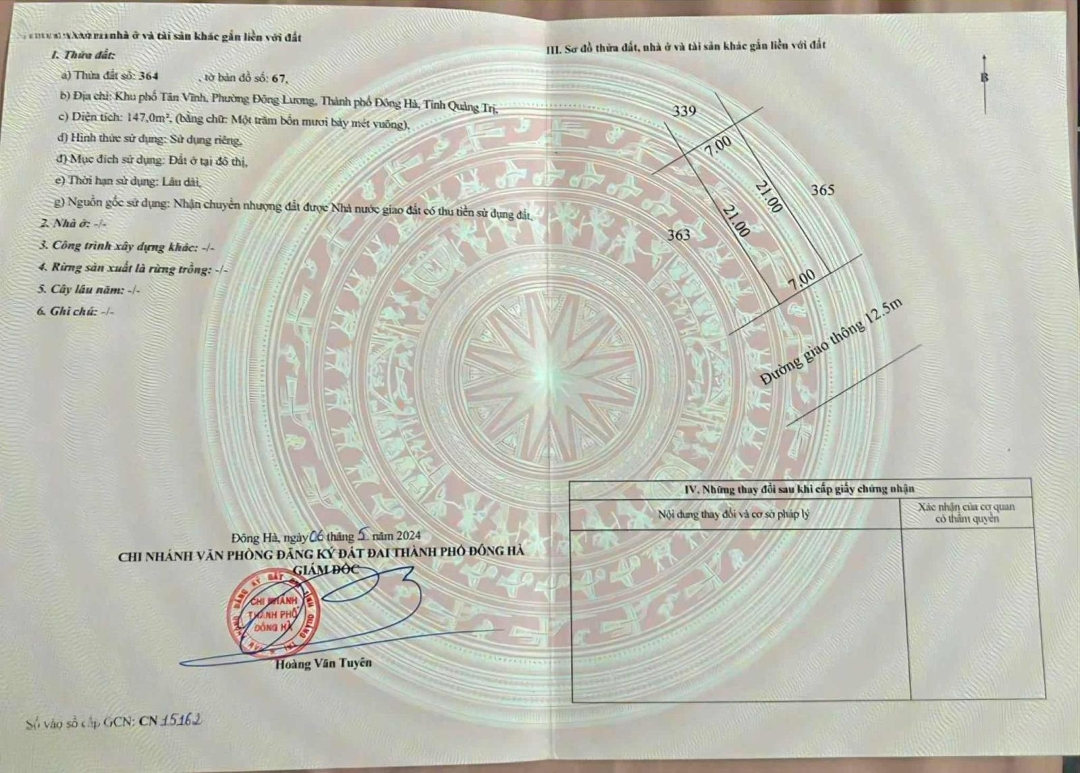 nhà ở và tài sản khác gắn liền với đất
1. Thửa đất:
a) Thửa đất số: 364 , tờ bản đồ số: 67,
b) Địa chỉ: Khu phố Tân Vĩnh, Phường Đông Lương, Thành phố Đông Hà, Tỉnh Quảng Trị,
c) Diện tích: 147,0m², (bằng chữ: Một trăm bốn mươi bảy mét vuông),
d) Hình thức sử dụng: Sử dụng riêng,
đ) Mục đích sử dụng: Đất ở tại đô thị,
e) Thời hạn sử dụng: Lâu dài,
g) Nguồn gốc sử dụng: Nhận chuyển nhượng đất được Nhà nước giao đất có thu tiền sử dụng đất,
2. Nhà ở: -/-
3. Công trình xây dựng khác: -/-
4. Rừng sản xuất là rừng trồng: -/-
5. Cây lâu năm: -/-
6. Ghi chú: -/-
Đông Hà, ngày 06 tháng 5 năm 2024
CHI NHÁNH VĂN PHÒNG ĐĂNG KÝ ĐẤT ĐAI THÀNH PHỐ ĐÔNG HÀ
GIÁM ĐỐC
CHI NHÁNH
THÀNH PHỐ
ĐÔNG HÀ
Hoàng Văn Tuyên
Số vào sổ cấp GCN: CN 15162
III. Sơ đồ thửa đất, nhà ở và tài sản khác gắn liền với đất
B
339
7.00
365
21.00
21.00
363
7.00
Đường giao thông 12.5m
IV. Những thay đổi sau khi cấp giấy chứng nhận
Nội dung thay đổi và cơ sở pháp lý
Xác nhận của cơ quan
có thẩm quyền